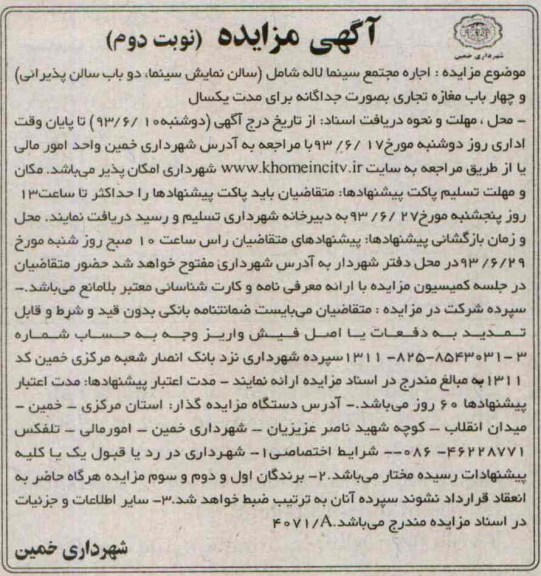 آگهی مزایده (نوبت دوم)
شهرداری خمین
موضوع مزایده : اجاره مجتمع سینما لاله شامل (سالن نمایش سینما، دو باب سالن پذیرائی)
و چهار باب مغازه تجاری بصورت جداگانه برای مدت یکسال
- محل ، مهلت و نحوه دریافت اسناد: از تاریخ درج آگهی (دوشنبه۱۰ /۹۳/۶) تا پایان وقت
اداری روز دوشنبه مورخ۱۷ /۶/ ۹۳با مراجعه به آدرس شهرداری خمین واحد امور مالی
یا از طریق مراجعه به سایت www.khomeincity.ir شهرداری امکان پذیر می‌باشد. مکان
و مهلت تسلیم پاکت پیشنهادها: متقاضیان باید پاکت پیشنهادها را حداکثر تا ساعت۱۳
روز پنجشنبه مورخ۲۷ /۶/ ۹۳به دبیرخانه شهرداری تسلیم و رسید دریافت نمایند. محل
و زمان بازگشائی پیشنهادها: پیشنهادهای متقاضیان راس ساعت ۱۰ صبح روز شنبه مورخ
۹۳/۶/۲۹در محل دفتر شهردار به آدرس شهرداری مفتوح خواهد شد حضور متقاضیان
در جلسه کمیسیون مزایده با ارائه معرفی نامه و کارت شناسائی معتبر بلامانع می‌باشد.-
سپرده شرکت در مزایده : متقاضیان می‌بایست ضمانتنامه بانکی بدون قید و شرط و قابل
تمدید به دفعات یا اصل فیش واریز وجه به حساب شماره
۳-۸۵۴۳۰۳۱-۸۲۵-۱۳۱۱سپرده شهرداری نزد بانک انصار شعبه مرکزی خمین کد
۱۳۱۱به مبالغ مندرج در اسناد مزایده ارائه نمایند - مدت اعتبار پیشنهادها: مدت اعتبار
پیشنهادها ۶۰ روز می‌باشد.- آدرس دستگاه مزایده گذار: استان مرکزی - خمین -
میدان انقلاب - کوچه شهید ناصر عزیزیان - شهرداری خمین - امورمالی - تلفکس
۴۶۲۲۸۷۷۱- ۰۸۶-- شرایط اختصاصی۱- شهرداری در رد یا قبول یک یا کلیه
پیشنهادات رسیده مختار می‌باشد.۲- برندگان اول و دوم و سوم مزایده هرگاه حاضر به
انعقاد قرارداد نشوند سپرده آنان به ترتیب ضبط خواهد شد.۳- سایر اطلاعات و جزئیات
در اسناد مزایده مندرج می‌باشد.۴۰۷۱/A
شهرداری خمین